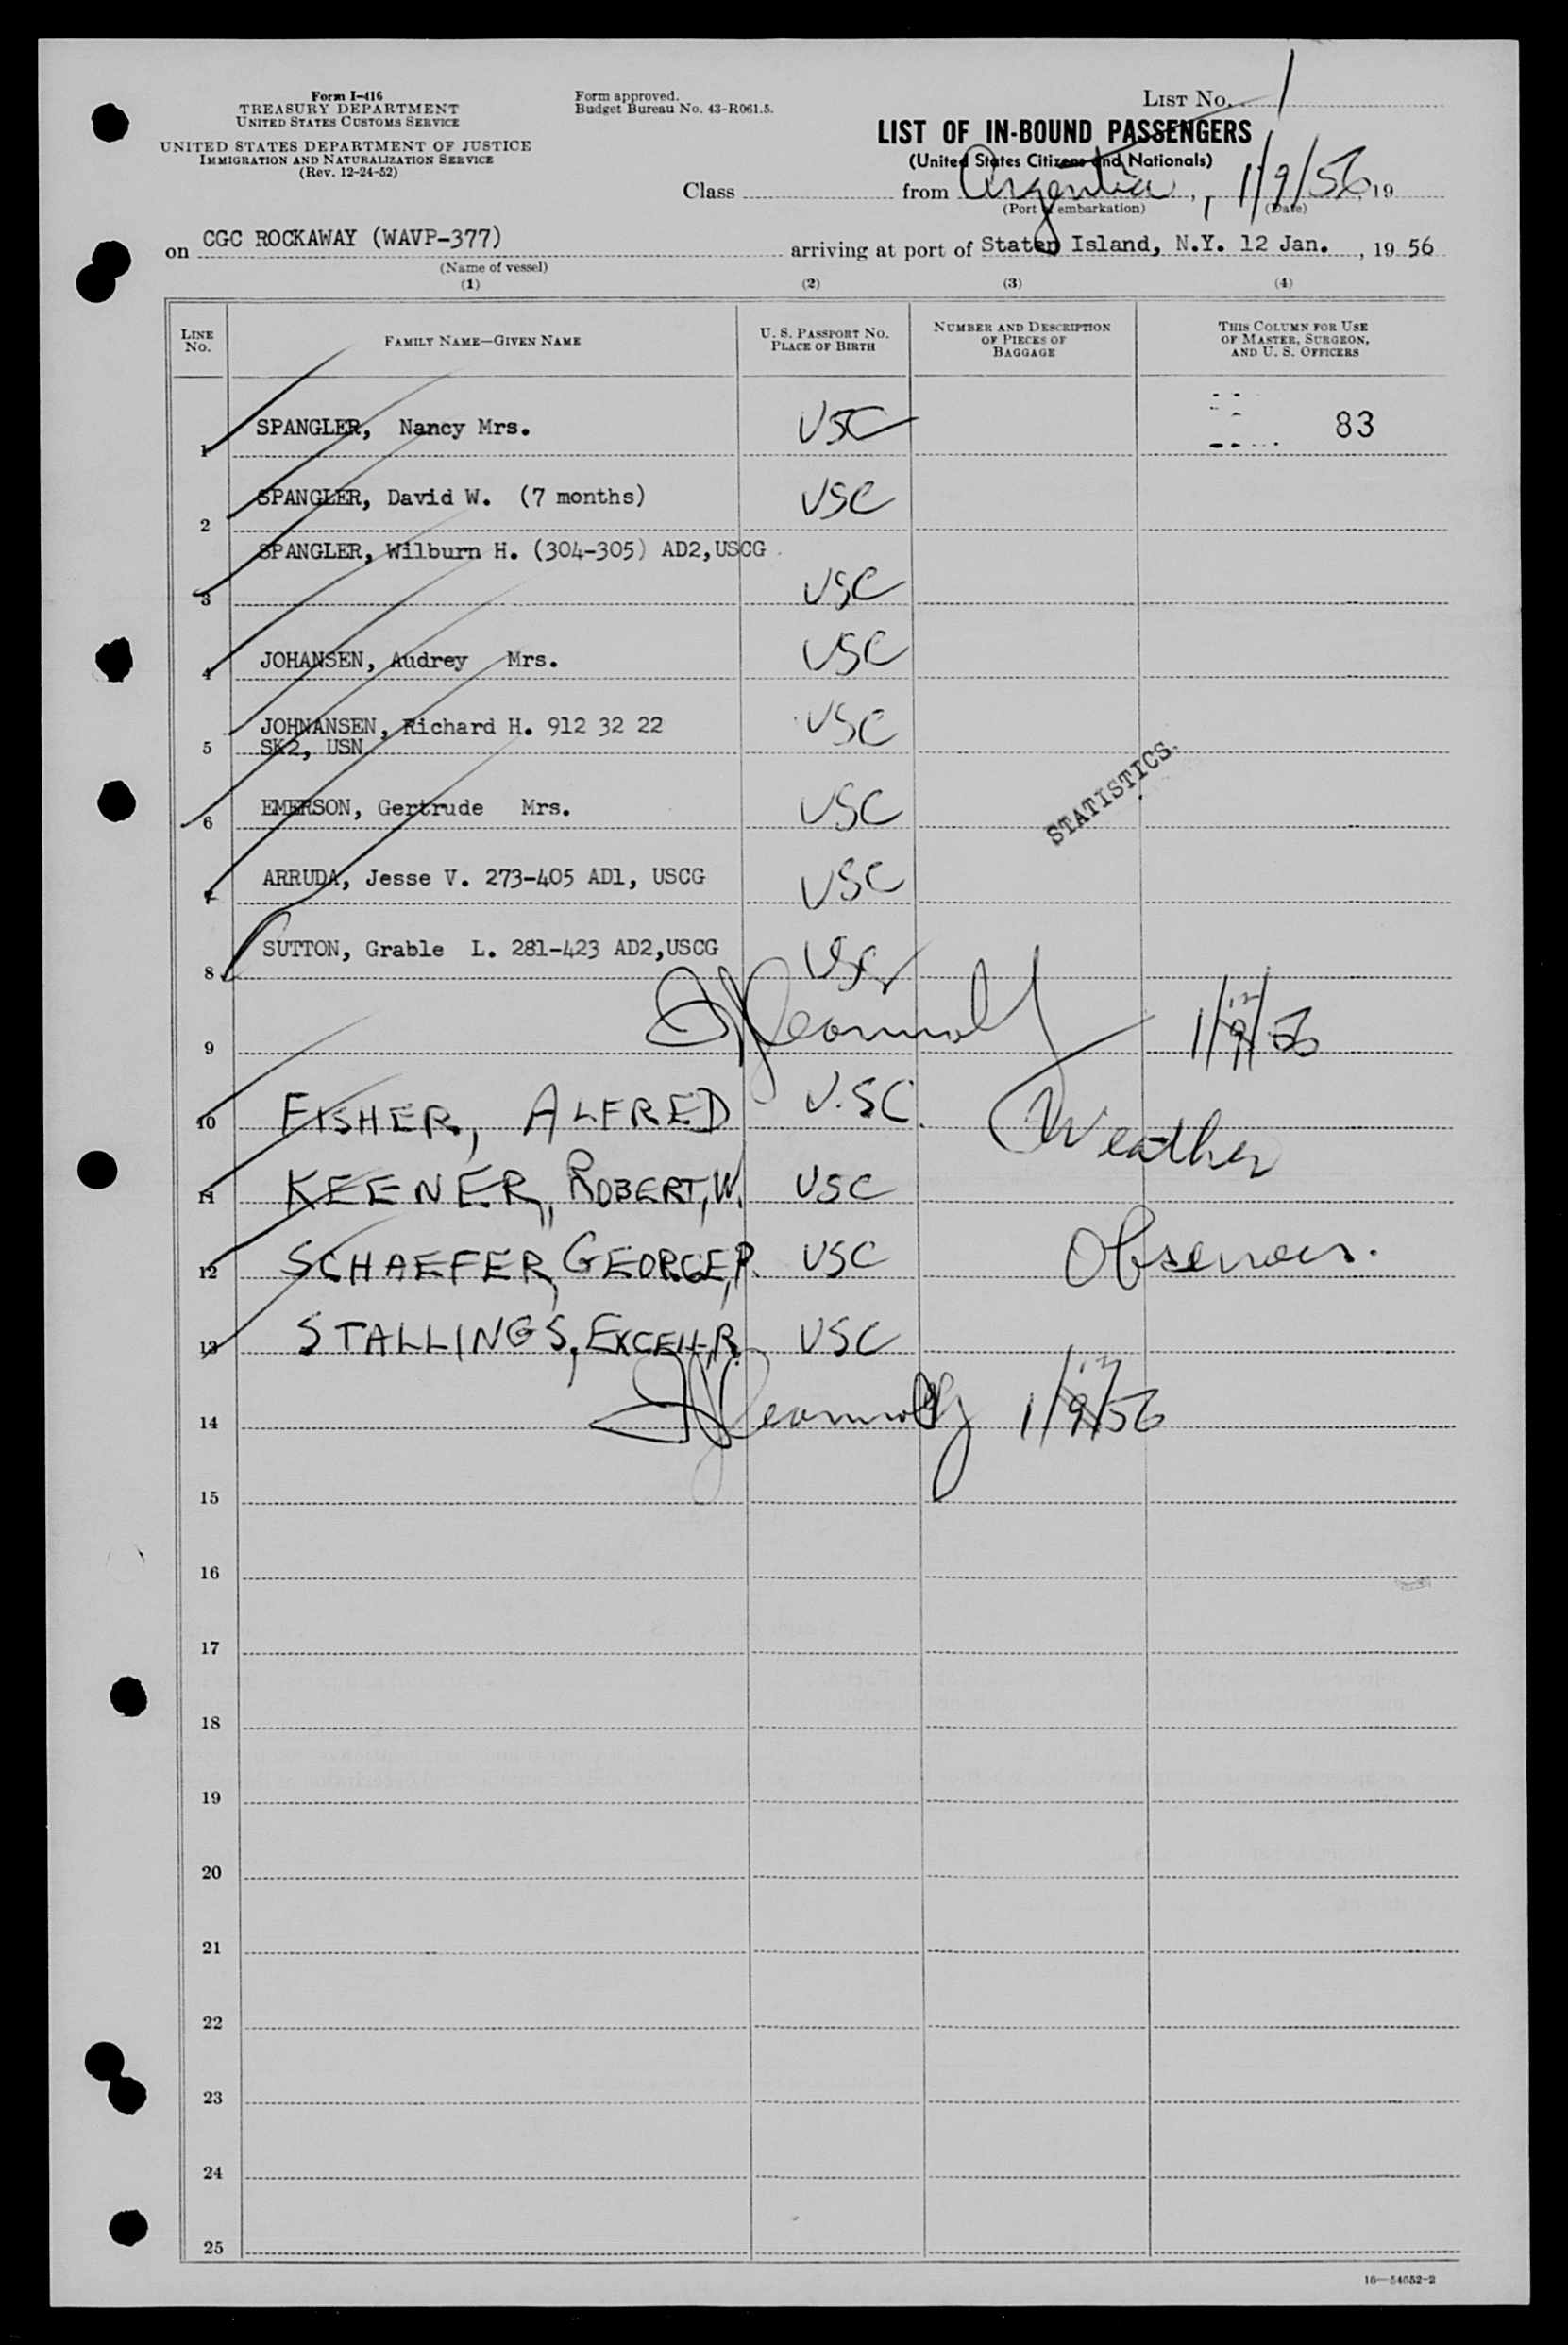 Form I-416
TREASURY DEPARTMENT
UNITED STATES CUSTOMS SERVICE
UNITED STATES DEPARTMENT OF JUSTICE
IMMIGRATION AND NATURALIZATION SERVICE
(Rev. 12-24-52)
Form approved.
Budget Bureau No. 43-R061.5.
LIST No. 1
LIST OF IN-BOUND PASSENGERS
(United States Citizens and Nationals)
Class from Argentia, 1/9/56, 19
(Port of embarkation) (Date)
on CGC ROCKAWAY (WAVP-377) arriving at port of Staten Island, N.Y. 12 Jan. , 19 56
(Name of vessel)
(1) (2) (3) (4)
LINE No. FAMILY NAME—GIVEN NAME U. S. PASSPORT No. PLACE OF BIRTH NUMBER AND DESCRIPTION OF PIECES OF BAGGAGE THIS COLUMN FOR USE OF MASTER, SURGEON, AND U. S. OFFICERS
1 SPANGLER, Nancy Mrs. USC 83
2 SPANGLER, David W. (7 months) USC
3 SPANGLER, Wilburn H. (304-305) AD2,USCG USC
4 JOHANSEN, Audrey Mrs. USC
5 JOHNANSEN, Richard H. 912 32 22 USC
SK2, USN
STATISTICS
6 EMERSON, Gertrude Mrs. USC
7 ARRUDA, Jesse V. 273-405 AD1, USCG USC
8 SUTTON, Grable L. 281-423 AD2,USCG USC
9 1/9/56 12
10 FISHER, ALFRED U.SC. Weather
11 KEENER, ROBERT, W. USC
12 SCHAEFER, GEORGE, P. USC Observers.
13 STALLINGS, EXCELL, R. USC
14 1/9/56 12
15
16
17
18
19
20
21
22
23
24
25
16—54652-2